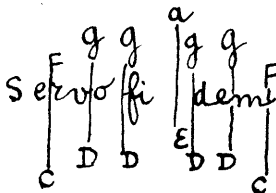 a
g g g g
F F
Servo fi demi
C D D E D D C